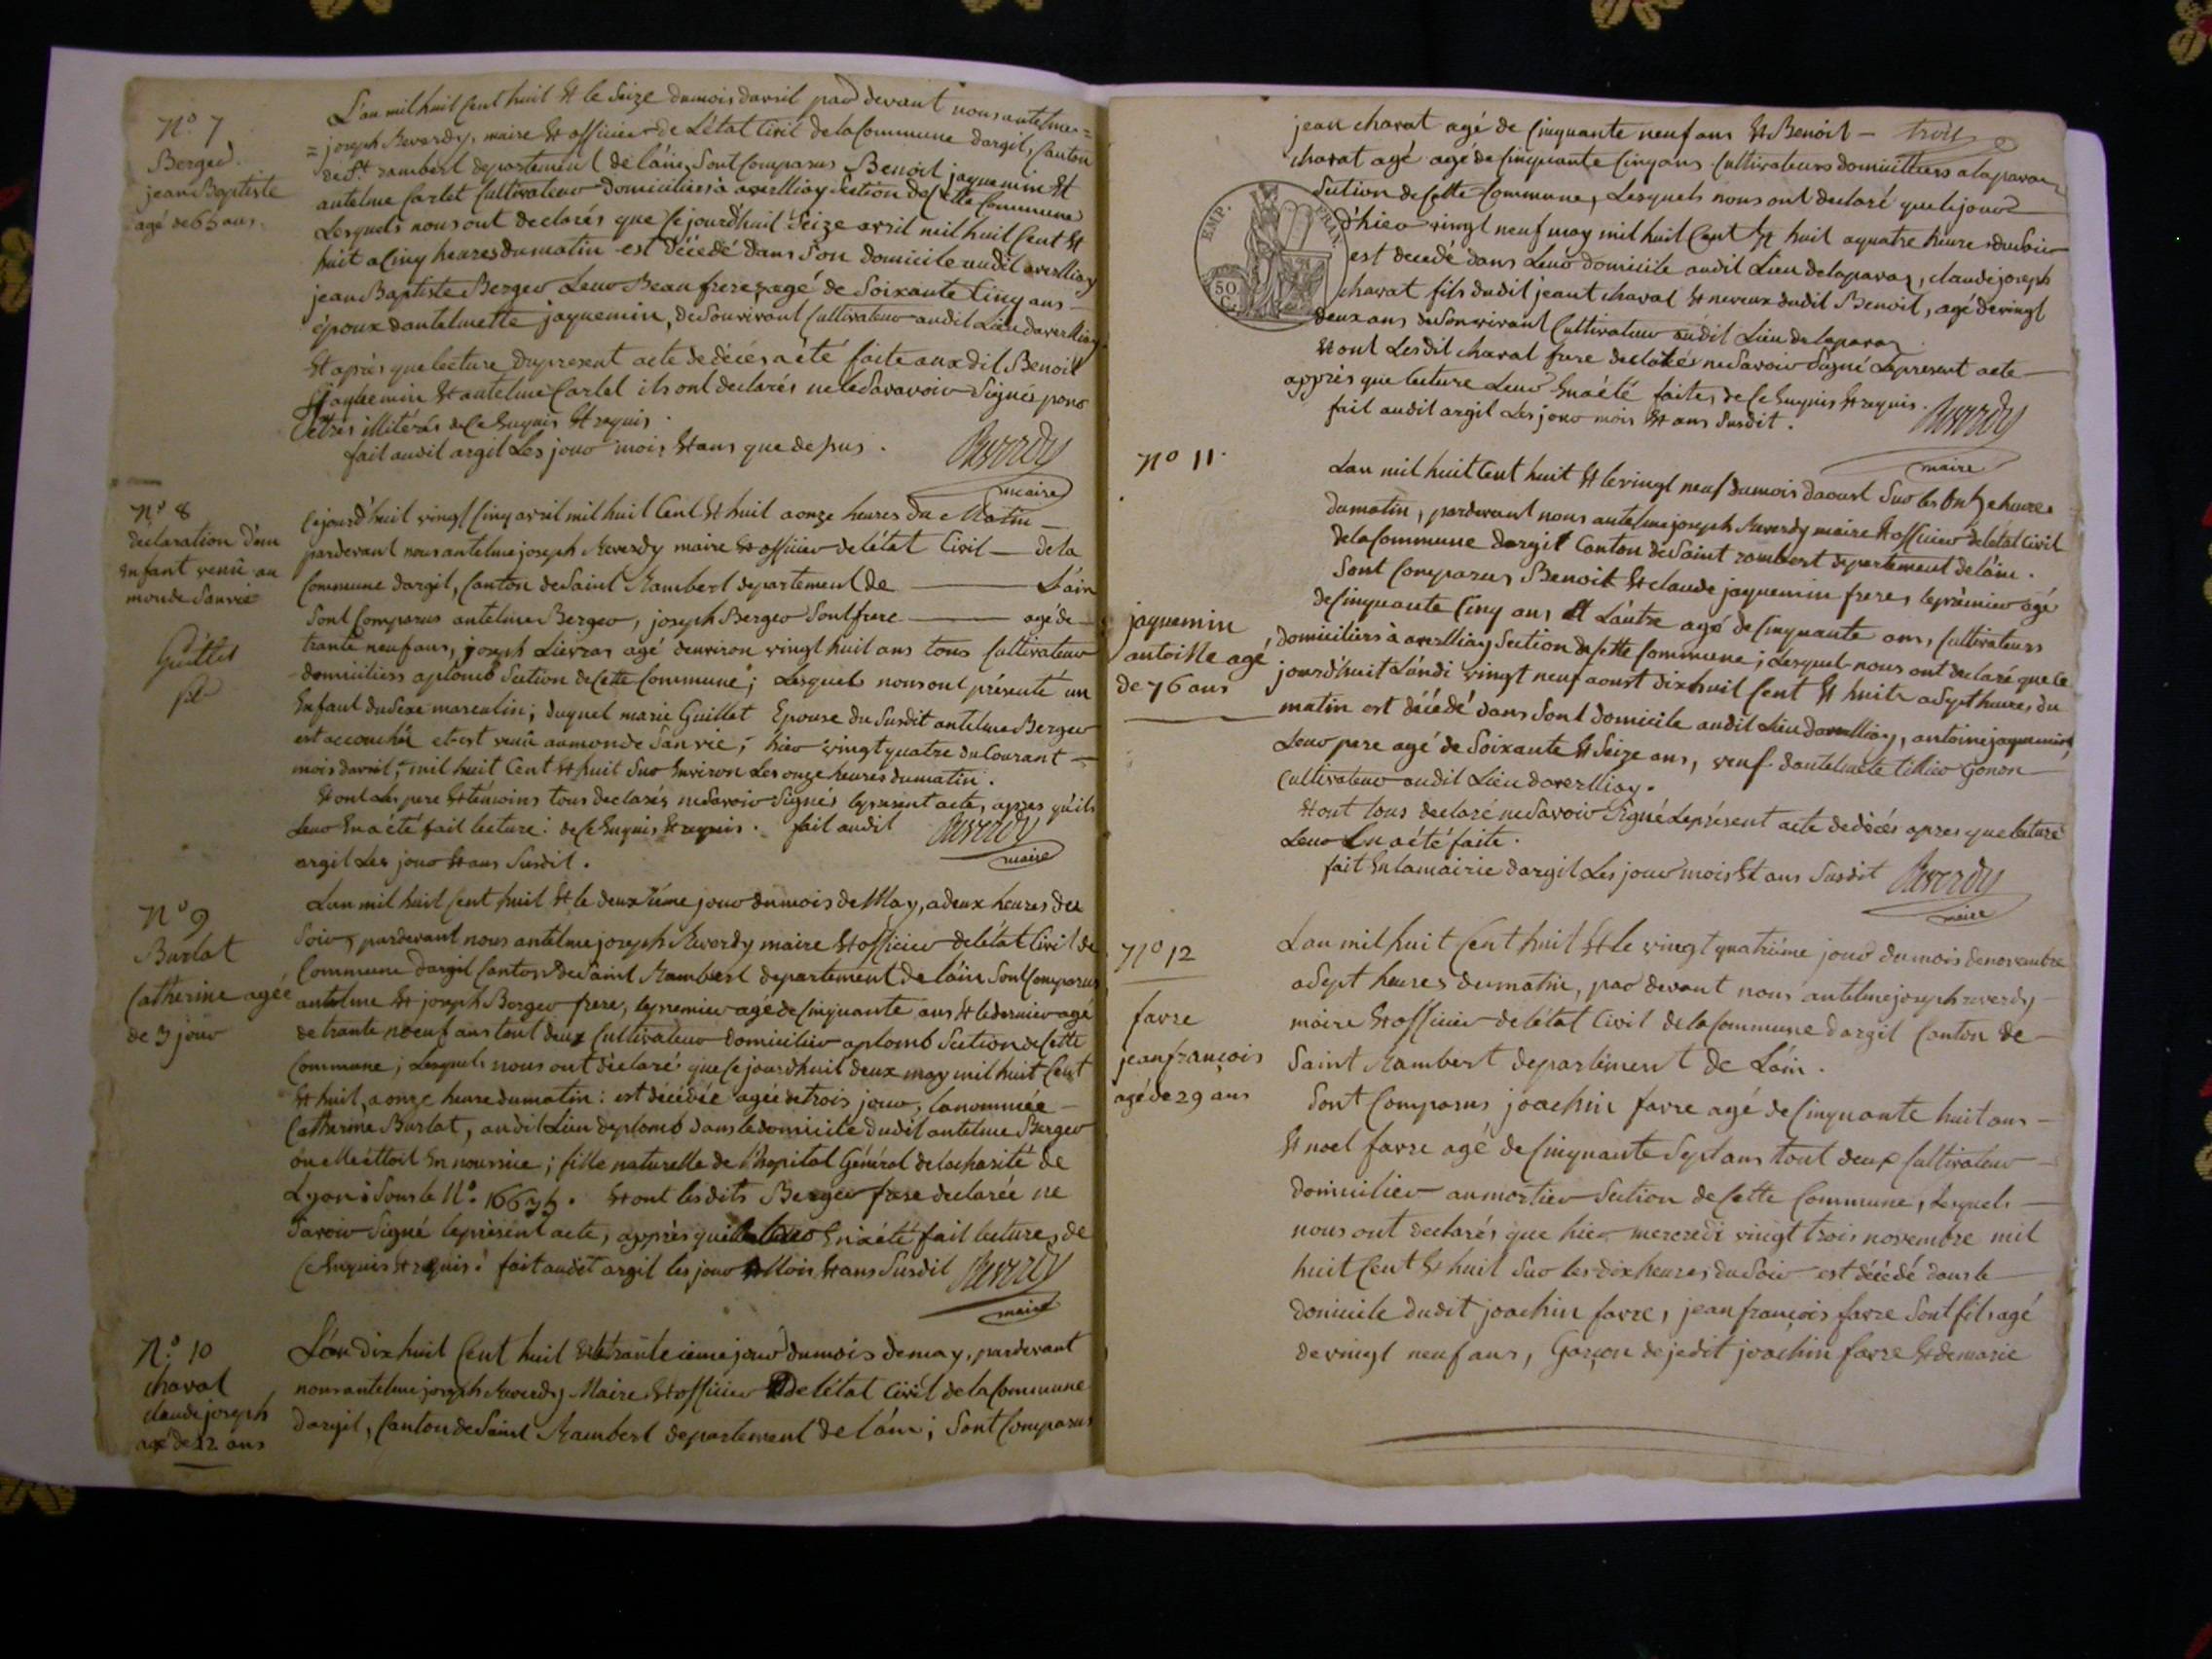 N.° 7
Berger
jean Baptiste
agé de 65 ans.
L'an mil huit Cent huit et le Seize du mois davril par devant nous antelme =
= joseph Reverdy, maire et officier de L'état Civil de la Commune dargit, Canton
de St. rambert departement de láin, Sont Comparus Benoit jaquemin et
antelme Carlet Cultivateur domiciliers à averlliay Section de Cette Commune
Lesquels nous ont declarés que Cejourd'huit Seize avril mil huit Cent et
huit a Cinq heures du matin est décedé dans Son domicile audit averlliay
jean Baptiste Berger Leur Beau frere, agé de Soixante Cinq ans
époux dantelmette jaquemin, de Son vivant Cultivateur audit Lieu daverlliay
Et après que lecture du present acte de décés a été faite aux dit Benoit
jaquemin et antelme Carlet ils ont declarés ne le Savavoir Signés pour
Etres illitérés de Ce Enquis et requis.
fait audit argit Les jour mois et ans que de pus.
Reverdy
maire
N.° 8
declaration d'un
Enfant venû au
monde Sans vie
Guillet
Cejourd'huit vingt Cinq avril mil huit Cent et huit a onze heures du Matin
pardevant nous antelme joseph Reverdy maire et officier de l'état Civil de la
Commune dargit, Canton de Saint Rambert departement de L'ain
Sont Comparus antelme Berger, joseph Berger Sont frere agé de
trante neuf ans, joseph Lievras agé denviron vingt huit ans tous Cultivateur
domiciliers aplomb Section de Cette Commune; Lesquels nous ont présenté un
Enfant du Sexe masculin; duquel marie Guillet Epouse du Susdit antelme Berger
est accouchée et est venû au monde Sans vie; hier vingt quatre du Courant
mois davril, mil huit Cent et huit Sur Environ Les onze heures du matin.
Et ont Les pere et témoins tous declarés ne Savoir Signés le present acte, apres qu'ils
Leur En a été fait lecture: de Ce Enquis et requis. fait audit
argit Les jour et ans Susdit.
Reverdy
maire
N° 9
Burlat
Catherine agée
de 3 jour
Lan mil huit Cent huit et le deuxiéme jour du mois de May, a deux heures du
Soir, pardevant nous antelme joseph Reverdy maire et officier de létat Civil de
Commune dargit Canton de Saint Rambert departement de láin Sont Comparus
antelme et joseph Berger frere, le premier agé de Cinquante ans et le dernier agé
de trante noeuf ans tout deux Cultivateur domicilier aplomb Section de Cette
Commune; Lesquels nous ont déclaré que Cejourdhuit deux may mil huit Cent
et huit, a onze heure du matin: est décédée agée de trois jour, la nommée
Catherine Burlat, audit Lieu deplomb dans le domicile dudit antelme Berger
ou elle éttoit En nourrice; fille naturelle de l'hopital Général de la charité de
Lyon: Sous le N°. Et ont les dits Berger frere declarée ne
Savoir Signé le présent acte, appres quil leur En a été fait lecture, de
Ce Enquis et requis: fait audit argit les jour et Mois et ans Susdit Reverdy
maire
N.° 10
charat
claude joseph
agé de 22 ans
Lán dix huit Cent huit et le trante ieme jour du mois de may, pardevant
nous antelme joseph Reverdy Maire et officier de létat Civil de la Commune
dargit, Canton de Saint Rambert departement de láin; Sont Comparus
jean charat agé de Cinquante neuf ans et Benoit — trois
charat agé agé de Cinquante Cinq ans Cultivateurs domicilliers a la paraz
Section de Cette Commune, Lesquels nous ont declaré que le jour
d'hier vingt neuf may mil huit Cent et huit a quatre heure du Soir
est decedé dans Leur domicile audit Lieu de laparaz, claude joseph
charat fils dudit jeant charat et neveux dudit Benoit, agé de vingt
deux ans de Son vivant Cultivateur audit Lieu de laparaz.
Et ont Les dit charat frere declarés ne Savoir Signé Le present acte
apprès que lecture Leur En a été faite, de Ce Enquis et requis.
fait audit argit Les jour mois et ans Susdit.
Reverdy
maire
EMP. FRAN.
50
C.
N° 11.
jaquemin
antoine agé
de 76 ans
Lan mil huit Cent huit et le vingt neuf du mois daoust Sur les heures
du matin, pardevant nous antelme joseph Reverdy maire et officier de létat Civil
de la Commune dargit Canton de Saint rambert departement de láin.
Sont Comparus Benoit et claude jaquemin freres le premier agé
de Cinquante Cinq ans et L'autre agé de Cinquante ans, Cultivateurs
domiciliers à averlliay Section de Cette Commune; Lesquel nous ont declaré que Ce
jourd'huit Lundi vingt neuf aoust dix huit Cent et huit a Sept heures du
matin est décédé dans Sont domicile audit Lieu daverlliay, antoine jaquemin,
Leur pere agé de Soixante et Seize ans, veuf dantelmete tillier Gonon
Cultivateur audit Lieu daverlliay.
Et ont tous declaré ne Savoir Signé Le présent acte de décés apres que lecture
Leur En a été faite.
fait En la mairie dargit Les jour mois et ans Susdit Reverdy
maire
N° 12
favre
jean françois
agé de 29 ans
Lan mil huit Cent huit et le vingt quatriéme jour du mois de novembre
a Sept heures du matin, par devant nous antelme joseph reverdy
maire et officier de létat Civil de la Commune dargit Canton de
Saint Rambert departement de Láin.
Sont Comparus joachin favre agé de Cinquante huit ans
et noel favre agé de Cinquante Sept ans tout deux Cultivateur
domicilier au mortier Section de Cette Commune, Lesquels
nous ont declarés que hier mercredi vingt trois novembre mil
huit Cent et huit Sur les dix heures du Soir est décédé dans le
domicile dudit joachin favre, jean françois favre Sont fils agé
de vingt neuf ans, Garçon de jedit joachin favre et de marie